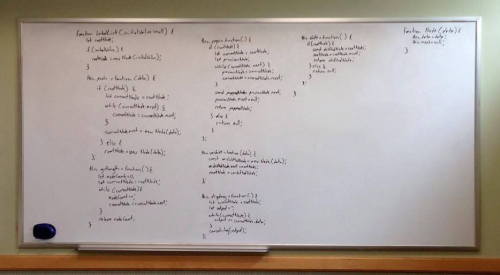 function LinkedList (initialValue=null) {
let rootNode;
if (initialValue) {
rootNode = new Node(initialValue);
}
this.push = function (data) {
if (rootNode) {
let currentNode = rootNode;
while (currentNode.next) {
currentNode = currentNode.next;
}
currentNode.next = new Node(data);
} else {
rootNode = new Node(data);
}
this.getLength = function () {
let nodeCount=0;
let currentNode = rootNode;
while (currentNode) {
nodeCount++;
currentNode = currentNode.next;
}
return nodeCount;
}
this.pop = function () {
if (rootNode) {
let currentNode = rootNode;
let previousNode;
while (currentNode.next) {
previousNode = currentNode;
currentNode = currentNode.next;
}
const poppedNode = previousNode.next;
previousNode.next = null;
return poppedNode;
} else {
return null;
}
};
this.unshift = function (data) {
const unshiftedNode = new Node(data);
unshiftedNode.next = rootNode;
rootNode = unshiftedNode;
};
this.display = function () {
let currentNode = rootNode;
let output = '';
while (currentNode) {
output += currentNode.data;
}
console.log(output);
};
this.shift = function () {
if (rootNode) {
const shiftedNode = rootNode;
rootNode = rootNode.next;
return shiftedNode;
} else {
return null;
}
};
}
function Node (data) {
this.data = data;
this.next = null;
}